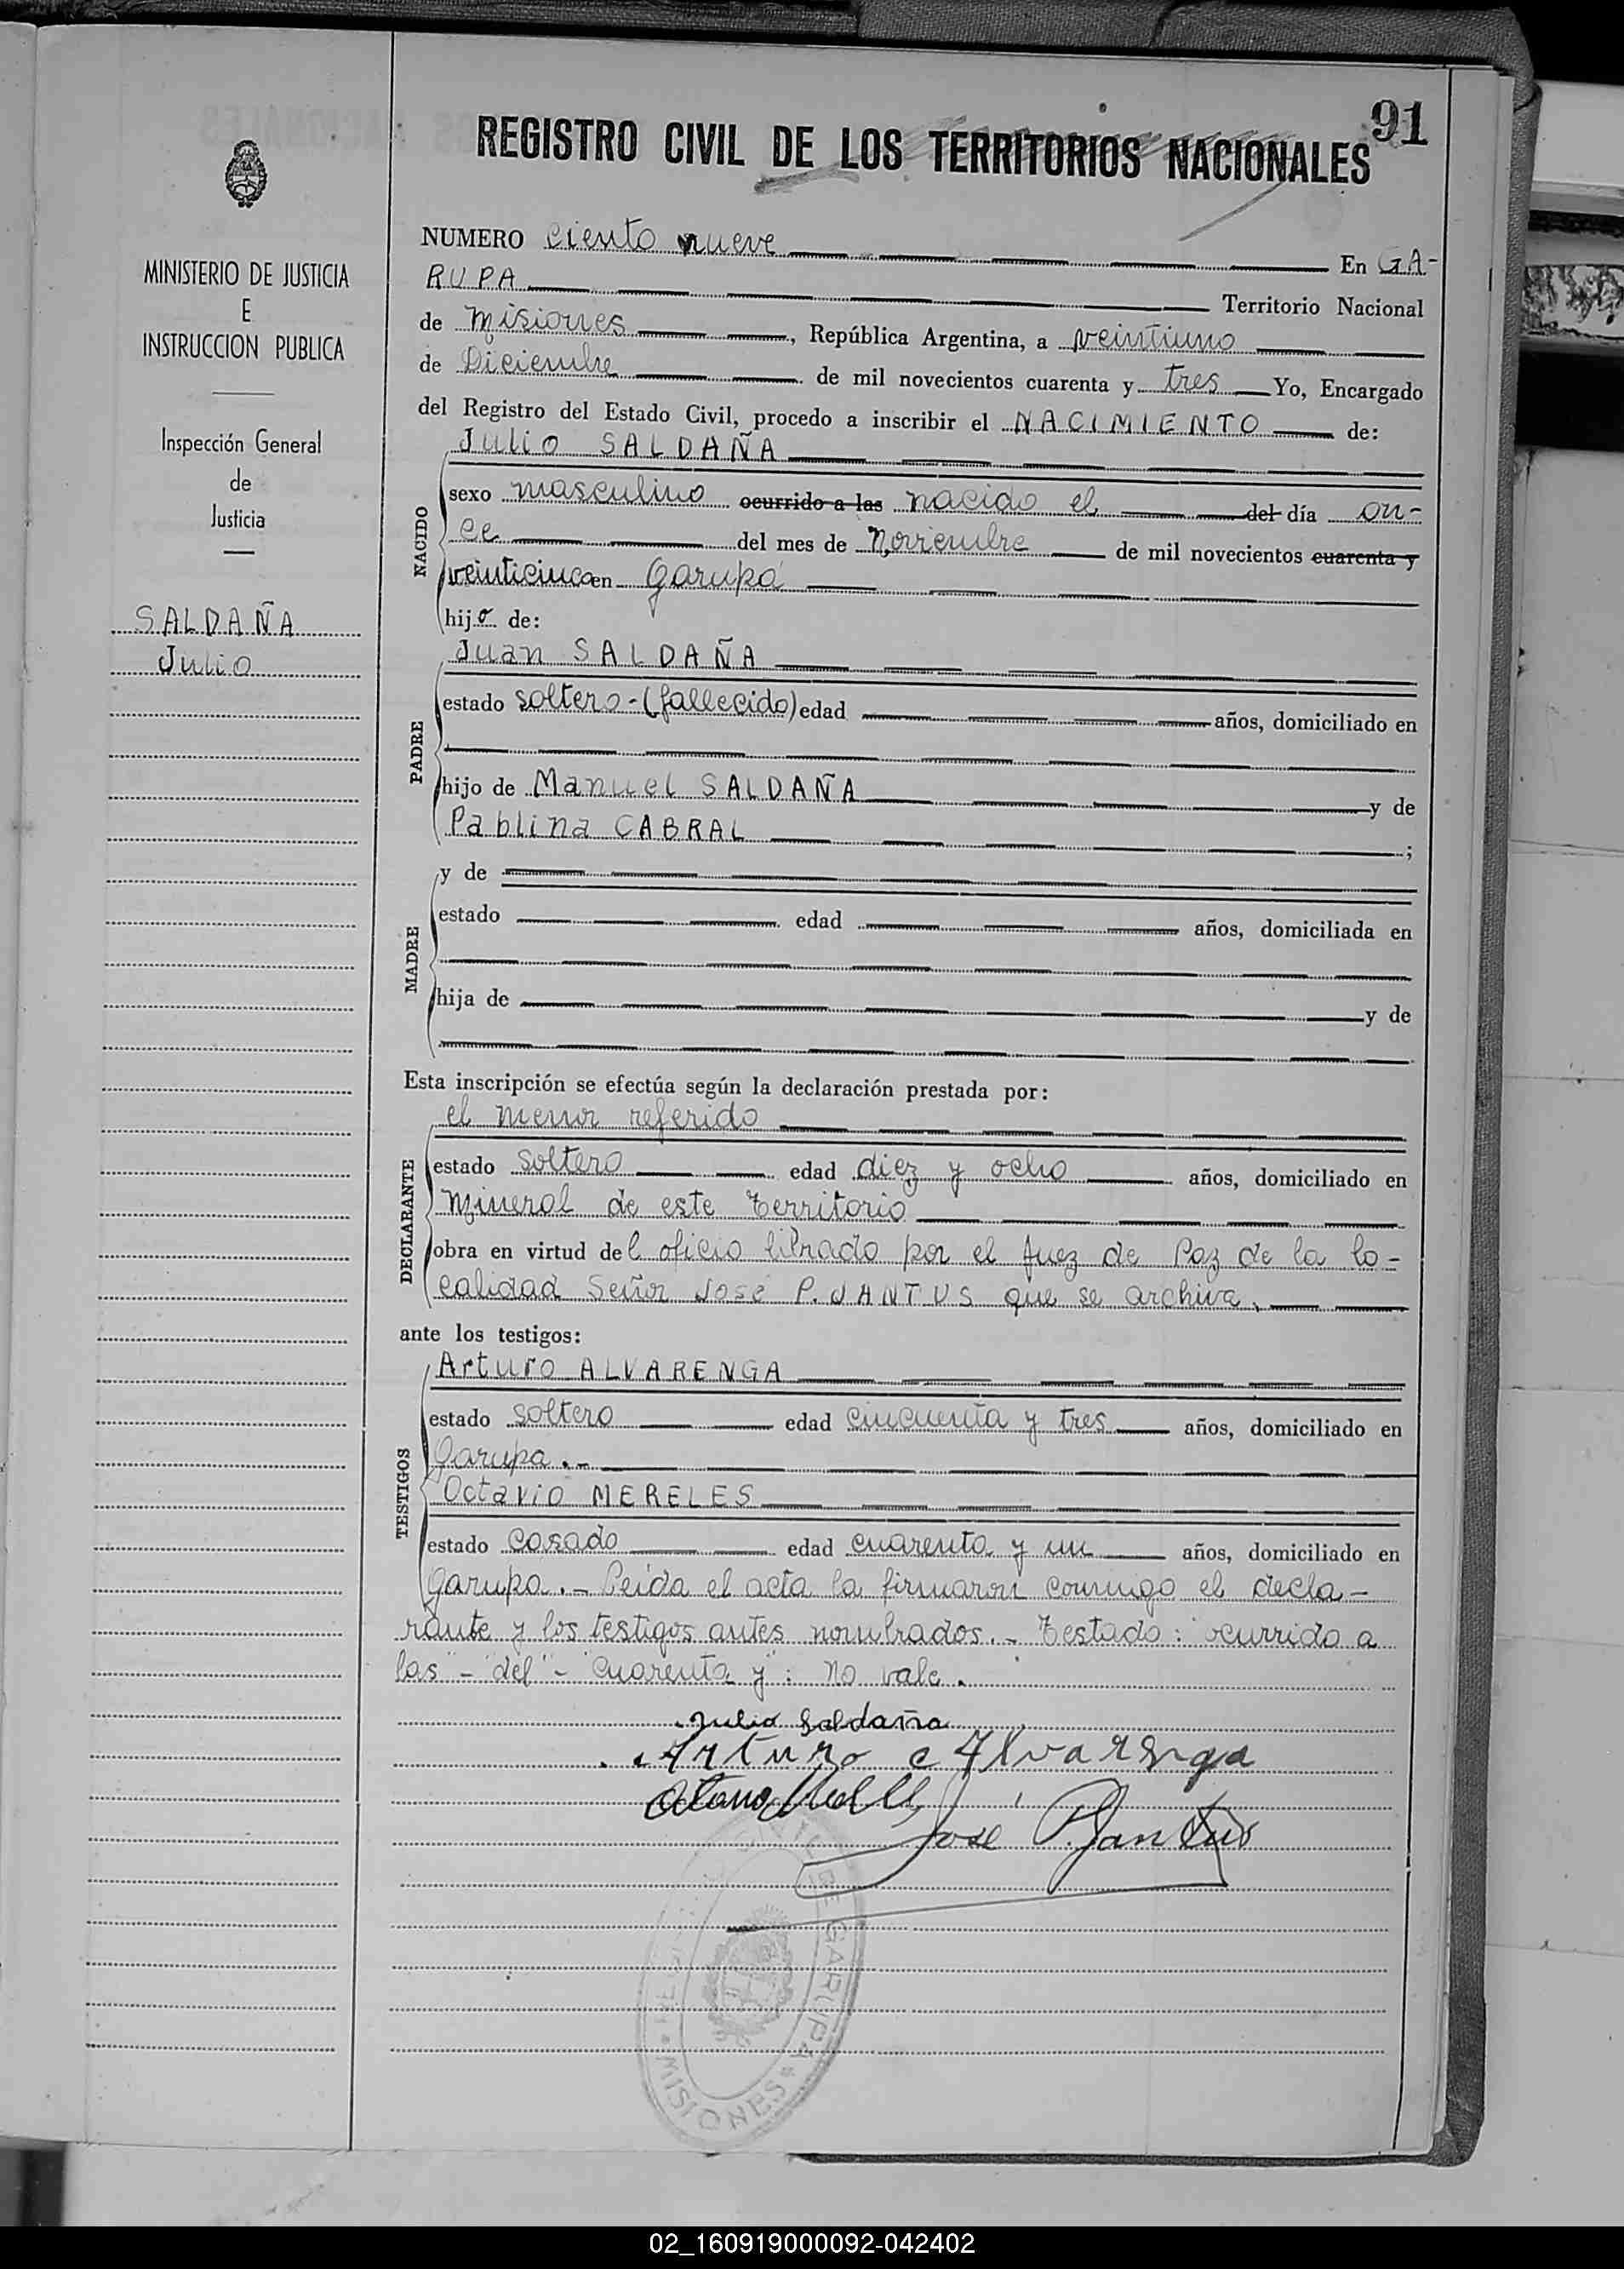 91
REGISTRO CIVIL DE LOS TERRITORIOS NACIONALES
MINISTERIO DE JUSTICIA
E
INSTRUCCION PUBLICA
Inspección General
de
Justicia
SALDAÑA
Julio
NUMERO ciento nueve En GA-
RUPA Territorio Nacional
de Misiones, República Argentina, a veintiuno
de Diciembre de mil novecientos cuarenta y tres Yo, Encargado
del Registro del Estado Civil, procedo a inscribir el NACIMIENTO de:
Julio SALDAÑA
NACIDO
sexo masculino ocurrido a las nacido el del día on-
ce del mes de Noviembre de mil novecientos cuarenta y
veinticinco en Garupá
hijo de:
Juan SALDAÑA
PADRE
estado soltero-(fallecido) edad años, domiciliado en
hijo de Manuel SALDAÑA y de
Pablina CABRAL ;
MADRE
y de
estado edad años, domiciliada en
hija de y de
Esta inscripción se efectúa según la declaración prestada por:
el menor referido
DECLARANTE
estado soltero edad diez y ocho años, domiciliado en
Mineral de este territorio
obra en virtud del oficio librado por el Juez de Paz de la lo-
calidad Señor José P. JANTUS que se archiva.
ante los testigos:
Arturo ALVARENGA
TESTIGOS
estado soltero edad cincuenta y tres años, domiciliado en
Garupa.-
Octavio MERELES
estado casado edad cuarenta y un años, domiciliado en
Garupa.- Leída el acta la firmaron conmigo el decla-
rante y los testigos antes nombrados.- Testado: "ocurrido a
las"-"del"-"cuarenta y": No vale.
Julio Saldaña
Arturo Alvarenga
José P. Jantus
GARUPA
MISIONES
02_160919000092-042402